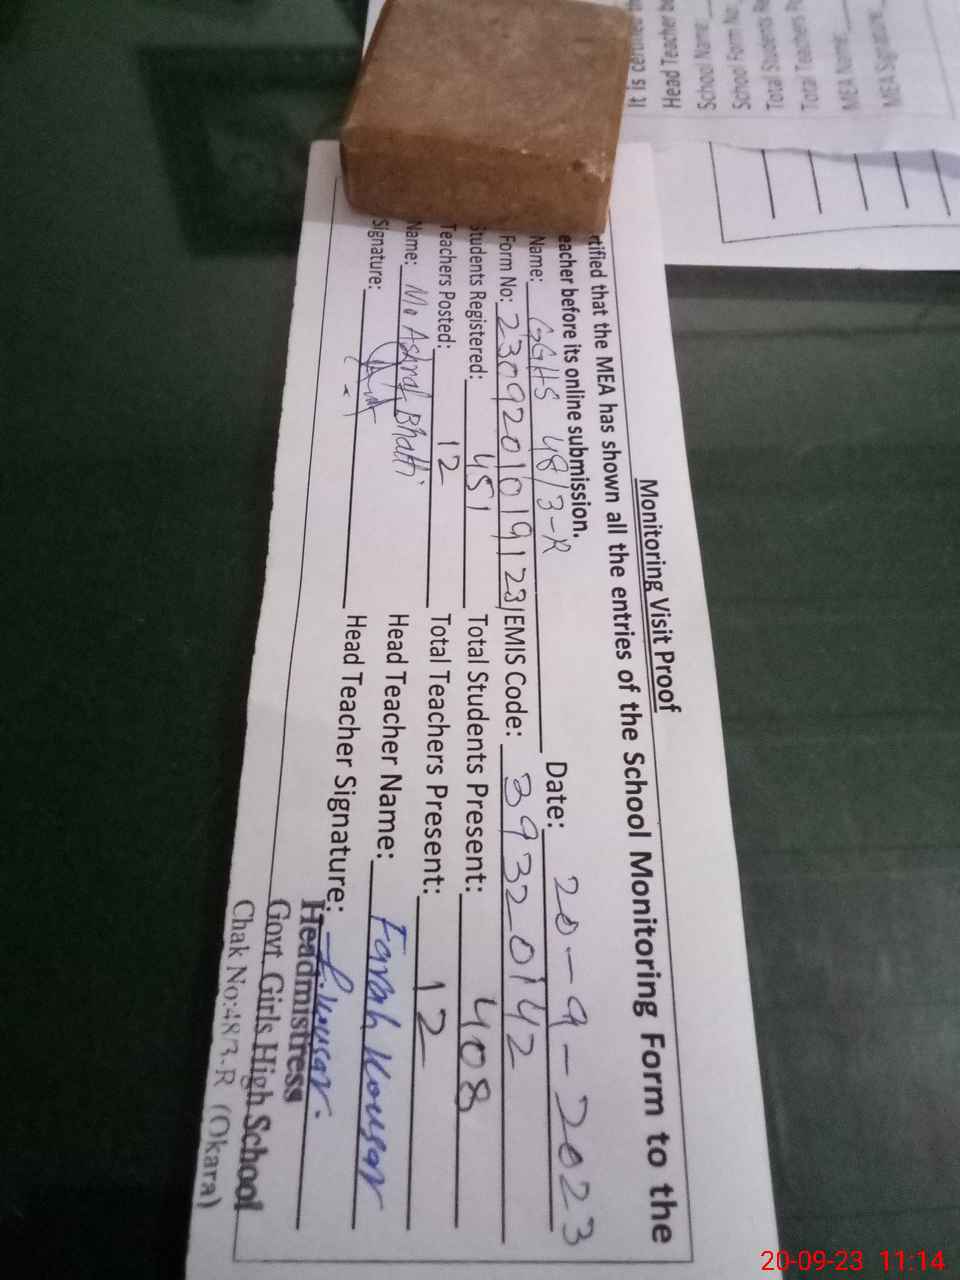 Monitoring Visit Proof
rtified that the MEA has shown all the entries of the School Monitoring Form to the
eacher before its online submission.
Name: GGHS 48/3-R Date: 20-9-2023
Form No: 23092010191231 EMIS Code: 39320142
Students Registered: 451 Total Students Present: 408
Teachers Posted: 12 Total Teachers Present: 12
Name: M. Ashraf Bhatti Head Teacher Name: Farah Kousar
Signature: Head Teacher Signature: F.Kousar.
Headmistress
Govt. Girls High School
Chak No:48/3-R (Okara)
It is
Head Teacher
School Name:
School Form No
Total Students
Total Teachers
MEA Name:
MEA Signature:
20-09-23 11:14